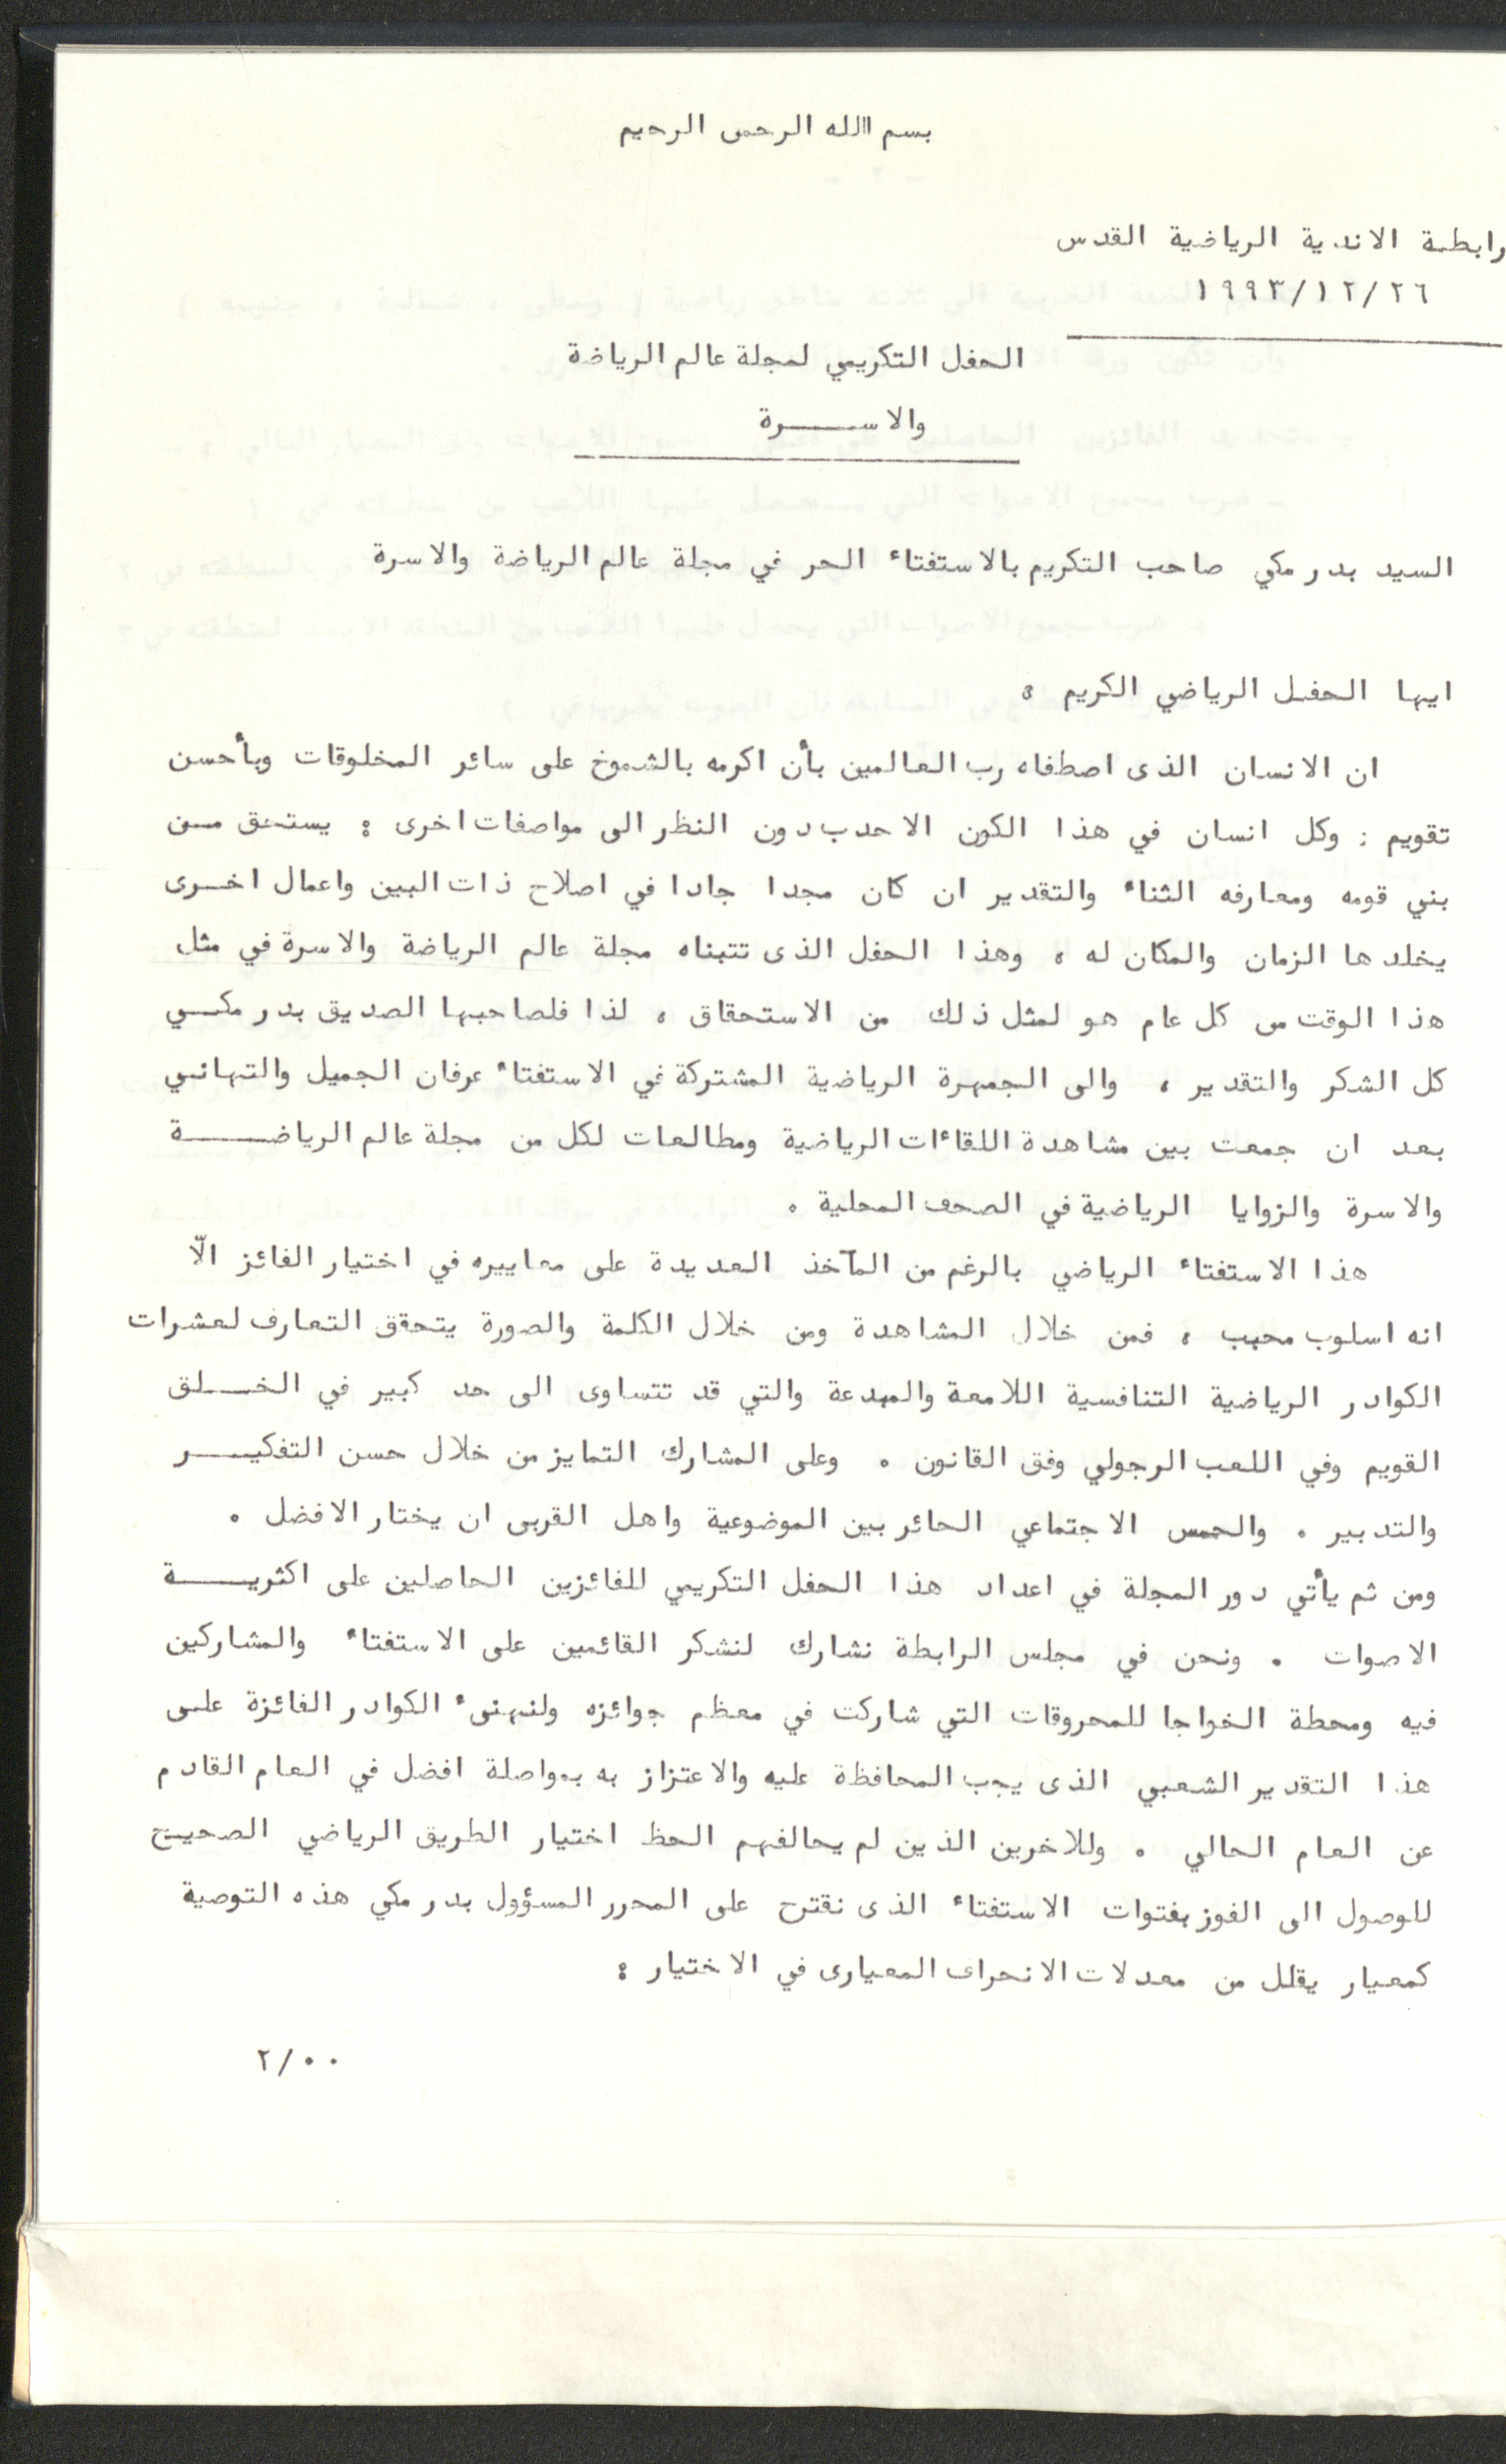 بسم الله الرحمن الرحيم
رابطة الاندية الرياضية القدس
١٩٩٣/١٢/٢٦
الحفل التكريمي لمجلة عالم الرياضة
والاســـرة
السيد بدر مكي صاحب التكريم بالاستفتاء الحر في مجلة عالم الرياضة والاسرة
ايها الحفل الرياضي الكريم ،
ان الانسان الذى اصطفاه رب العالمين بأن اكرمه بالشموخ على سائر المخلوقات وبأحسن
تقويم : وكل انسان في هذا الكون الاحدب دون النظر الى مواصفات اخرى : يستحق مـن
بني قومه ومعارفه الثناء والتقدير ان كان مجدا جادا في اصلاح ذات البين واعمال اخـرى
يخلدها الزمان والمكان له ، وهذا الحفل الذى تتبناه مجلة عالم الرياضة والاسرة في مثل
هذا الوقت من كل عام هو لمثل ذلك من الاستحقاق ، لذا فلصاحبها الصديق بدر مكـي
كل الشكر والتقدير ، والى الجمهرة الرياضية المشتركة في الاستفتاء عرفان الجميل والتهاني
بعد ان جمعت بين مشاهدة اللقاءات الرياضية ومطالعات لكل من مجلة عالم الرياضـــة
والاسرة والزوايا الرياضية في الصحف المحلية .
هذا الاستفتاء الرياضي بالرغم من المآخذ العديدة على معاييره في اختيار الفائز الّا
انه اسلوب محبب ، فمن خلال المشاهدة ومن خلال الكلمة والصورة يتحقق التعارف لعشرات
الكوادر الرياضية التنافسية اللامعة والمبدعة والتي قد تتساوى الى حد كبير في الخـلق
القويم وفي اللعب الرجولي وفق القانون . وعلى المشارك التمايز من خلال حسن التفكيـــر
والتدبير . والحس الاجتماعي الحائر بين الموضوعية واهل القربى ان يختار الافضل .
ومن ثم يأتي دور المجلة في اعداد هذا الحفل التكريمي للفائزين الحاصلين على اكثريـــة
الاصوات . ونحن في مجلس الرابطة نشارك لنشكر القائمين على الاستفتاء والمشاركين
فيه ومحطة الخواجا للمحروقات التي شاركت في معظم جوائزه ولنهنىء الكوادر الفائزة على
هذا التقدير الشعبي الذى يجب المحافظة عليه والاعتزاز به بمواصلة افضل في العام القادم
عن العام الحالي . وللاخرين الذين لم يحالفهم الحظ اختيار الطريق الرياضي الصحيح
للوصول الى الفوز بفتوات الاستفتاء الذى نقترح على المحرر المسؤول بدر مكي هذه التوصية
كمعيار يقلل من معدلات الانحراف المعيارى في الاختيار :
٢/٠٠